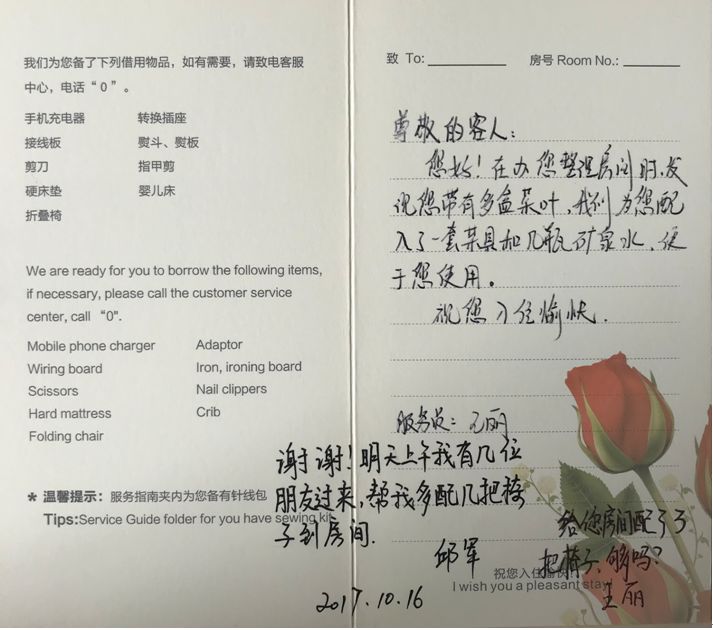 我们为您备了下列借用物品，如有需要，请致电客服
中心，电话“0”。
手机充电器 转换插座
接线板 熨斗、熨板
剪刀 指甲剪
硬床垫 婴儿床
折叠椅
We are ready for you to borrow the following items,
if necessary, please call the customer service
center, call “0".
Mobile phone charger Adaptor
Wiring board Iron, ironing board
Scissors Nail clippers
Hard mattress Crib
Folding chair
* 温馨提示：服务指南夹内为您备有针线包
Tips:Service Guide folder for you have sewing kit
致 To: 房号 Room No.:
尊敬的客人：
您好！在办您整理房间时，发
现您带有多盒茶叶，我们为您配
入了一套茶具和几瓶矿泉水，便
于您使用。
祝您入住愉快.
服务员：王丽
谢谢！明天上午我有几位
朋友过来，帮我多配几把椅
子到房间.
邱军
2017.10.16
给您房间配了3
把椅子、够吗？
王丽
祝您入住愉快!
I wish you a pleasant stay!